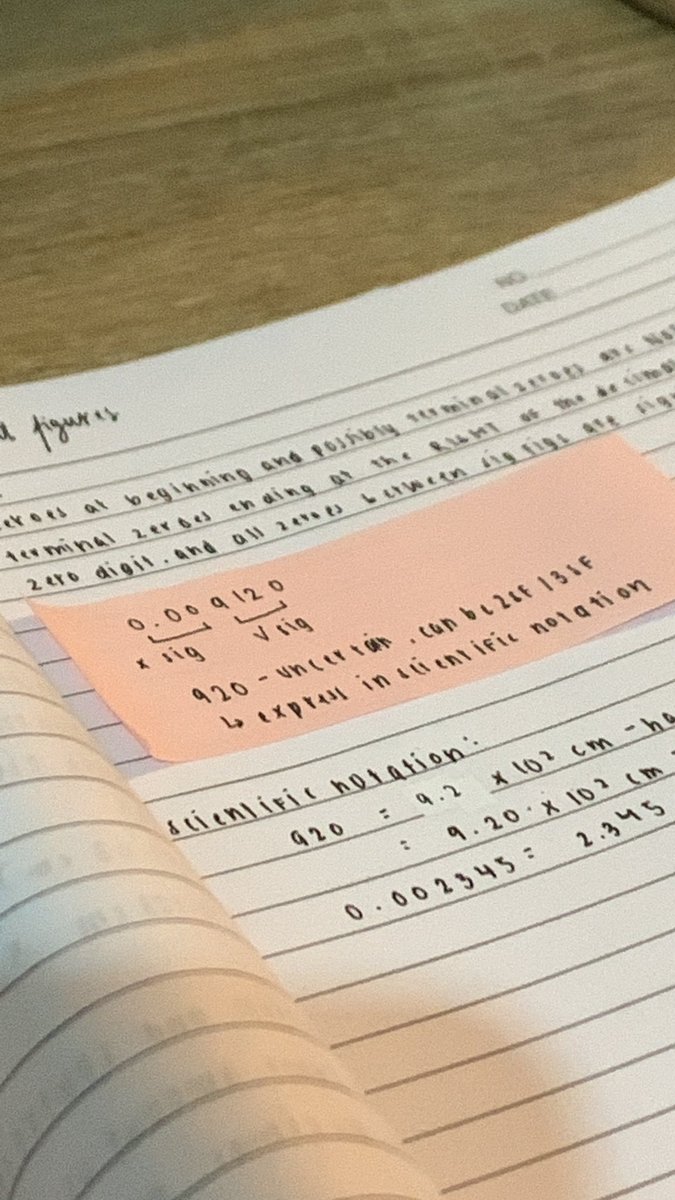 NO.
DATE
figures
zeroes at beginning and possibly terminal zeroes are NOT
terminal zeroes ending at the RIGHT of the decimal
zero digit. and all zeroes between sig figs are
0.009120
x sig √ sig
920 - uncertain, can be 2SF / 3SF
↳ express in scientific notation
scientific notation:
920 = 9.2 × 10² cm -
= 9.20 × 10² cm
0.002345 = 2.345